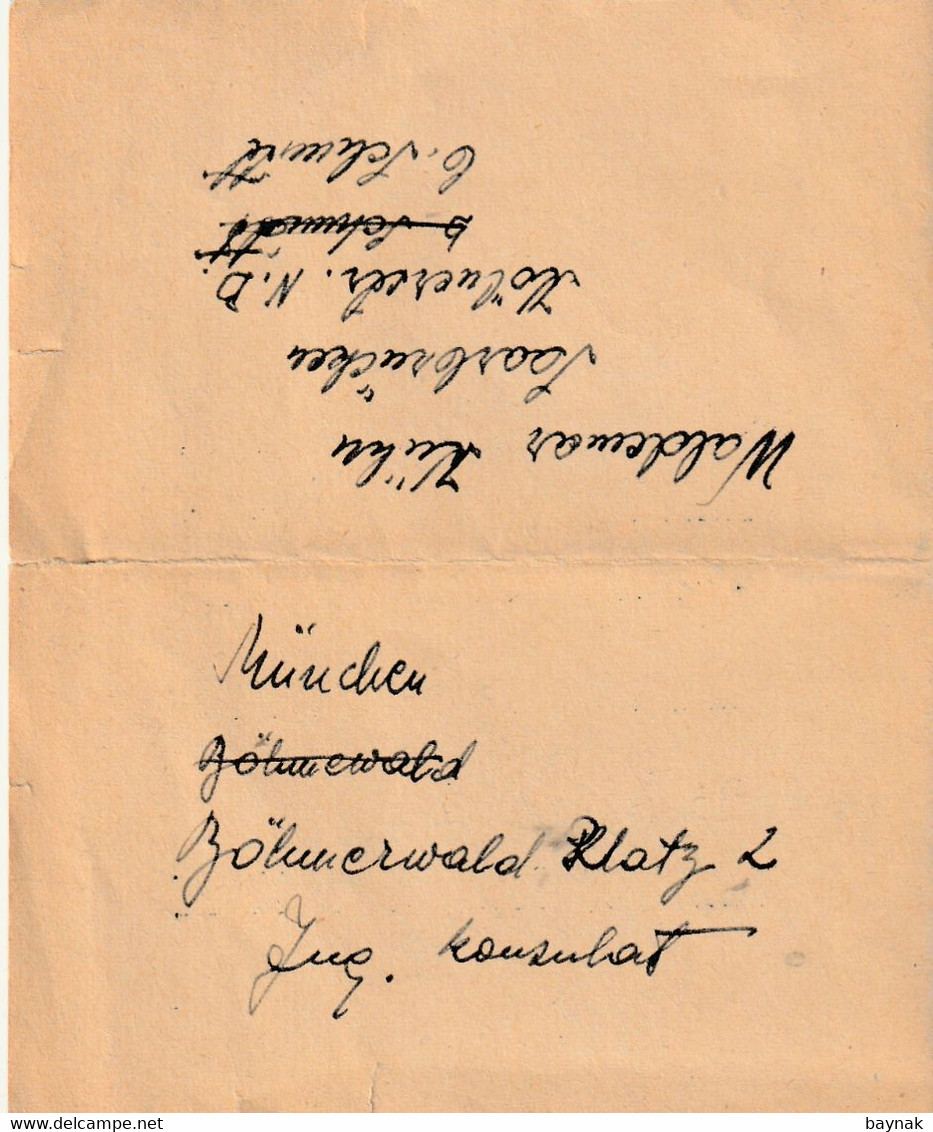 Waldemar Kühn
Saarbrücken
N.D.
Schmidt
C. Schmitt
München
Böhmewald
Böhmerwald Platz 2
Jug. Konsulat
delcampe.net
baynak